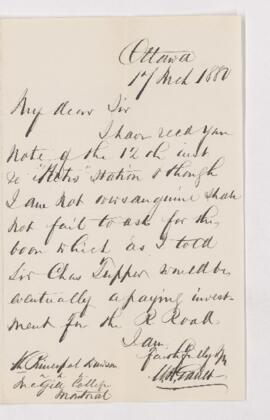 Ottawa
17 Mch 1880
My dear Sir
I have recd your
note of the 12th inst
re "Metis" station & though
I am not oversanguine shall
not fail to ask for the
boon which as I told
Sir Chas Tupper would be
eventually a paying invest-
ment for the R Road
I am
faithfully yrs
Principal Dawson
McGill College
Montreal